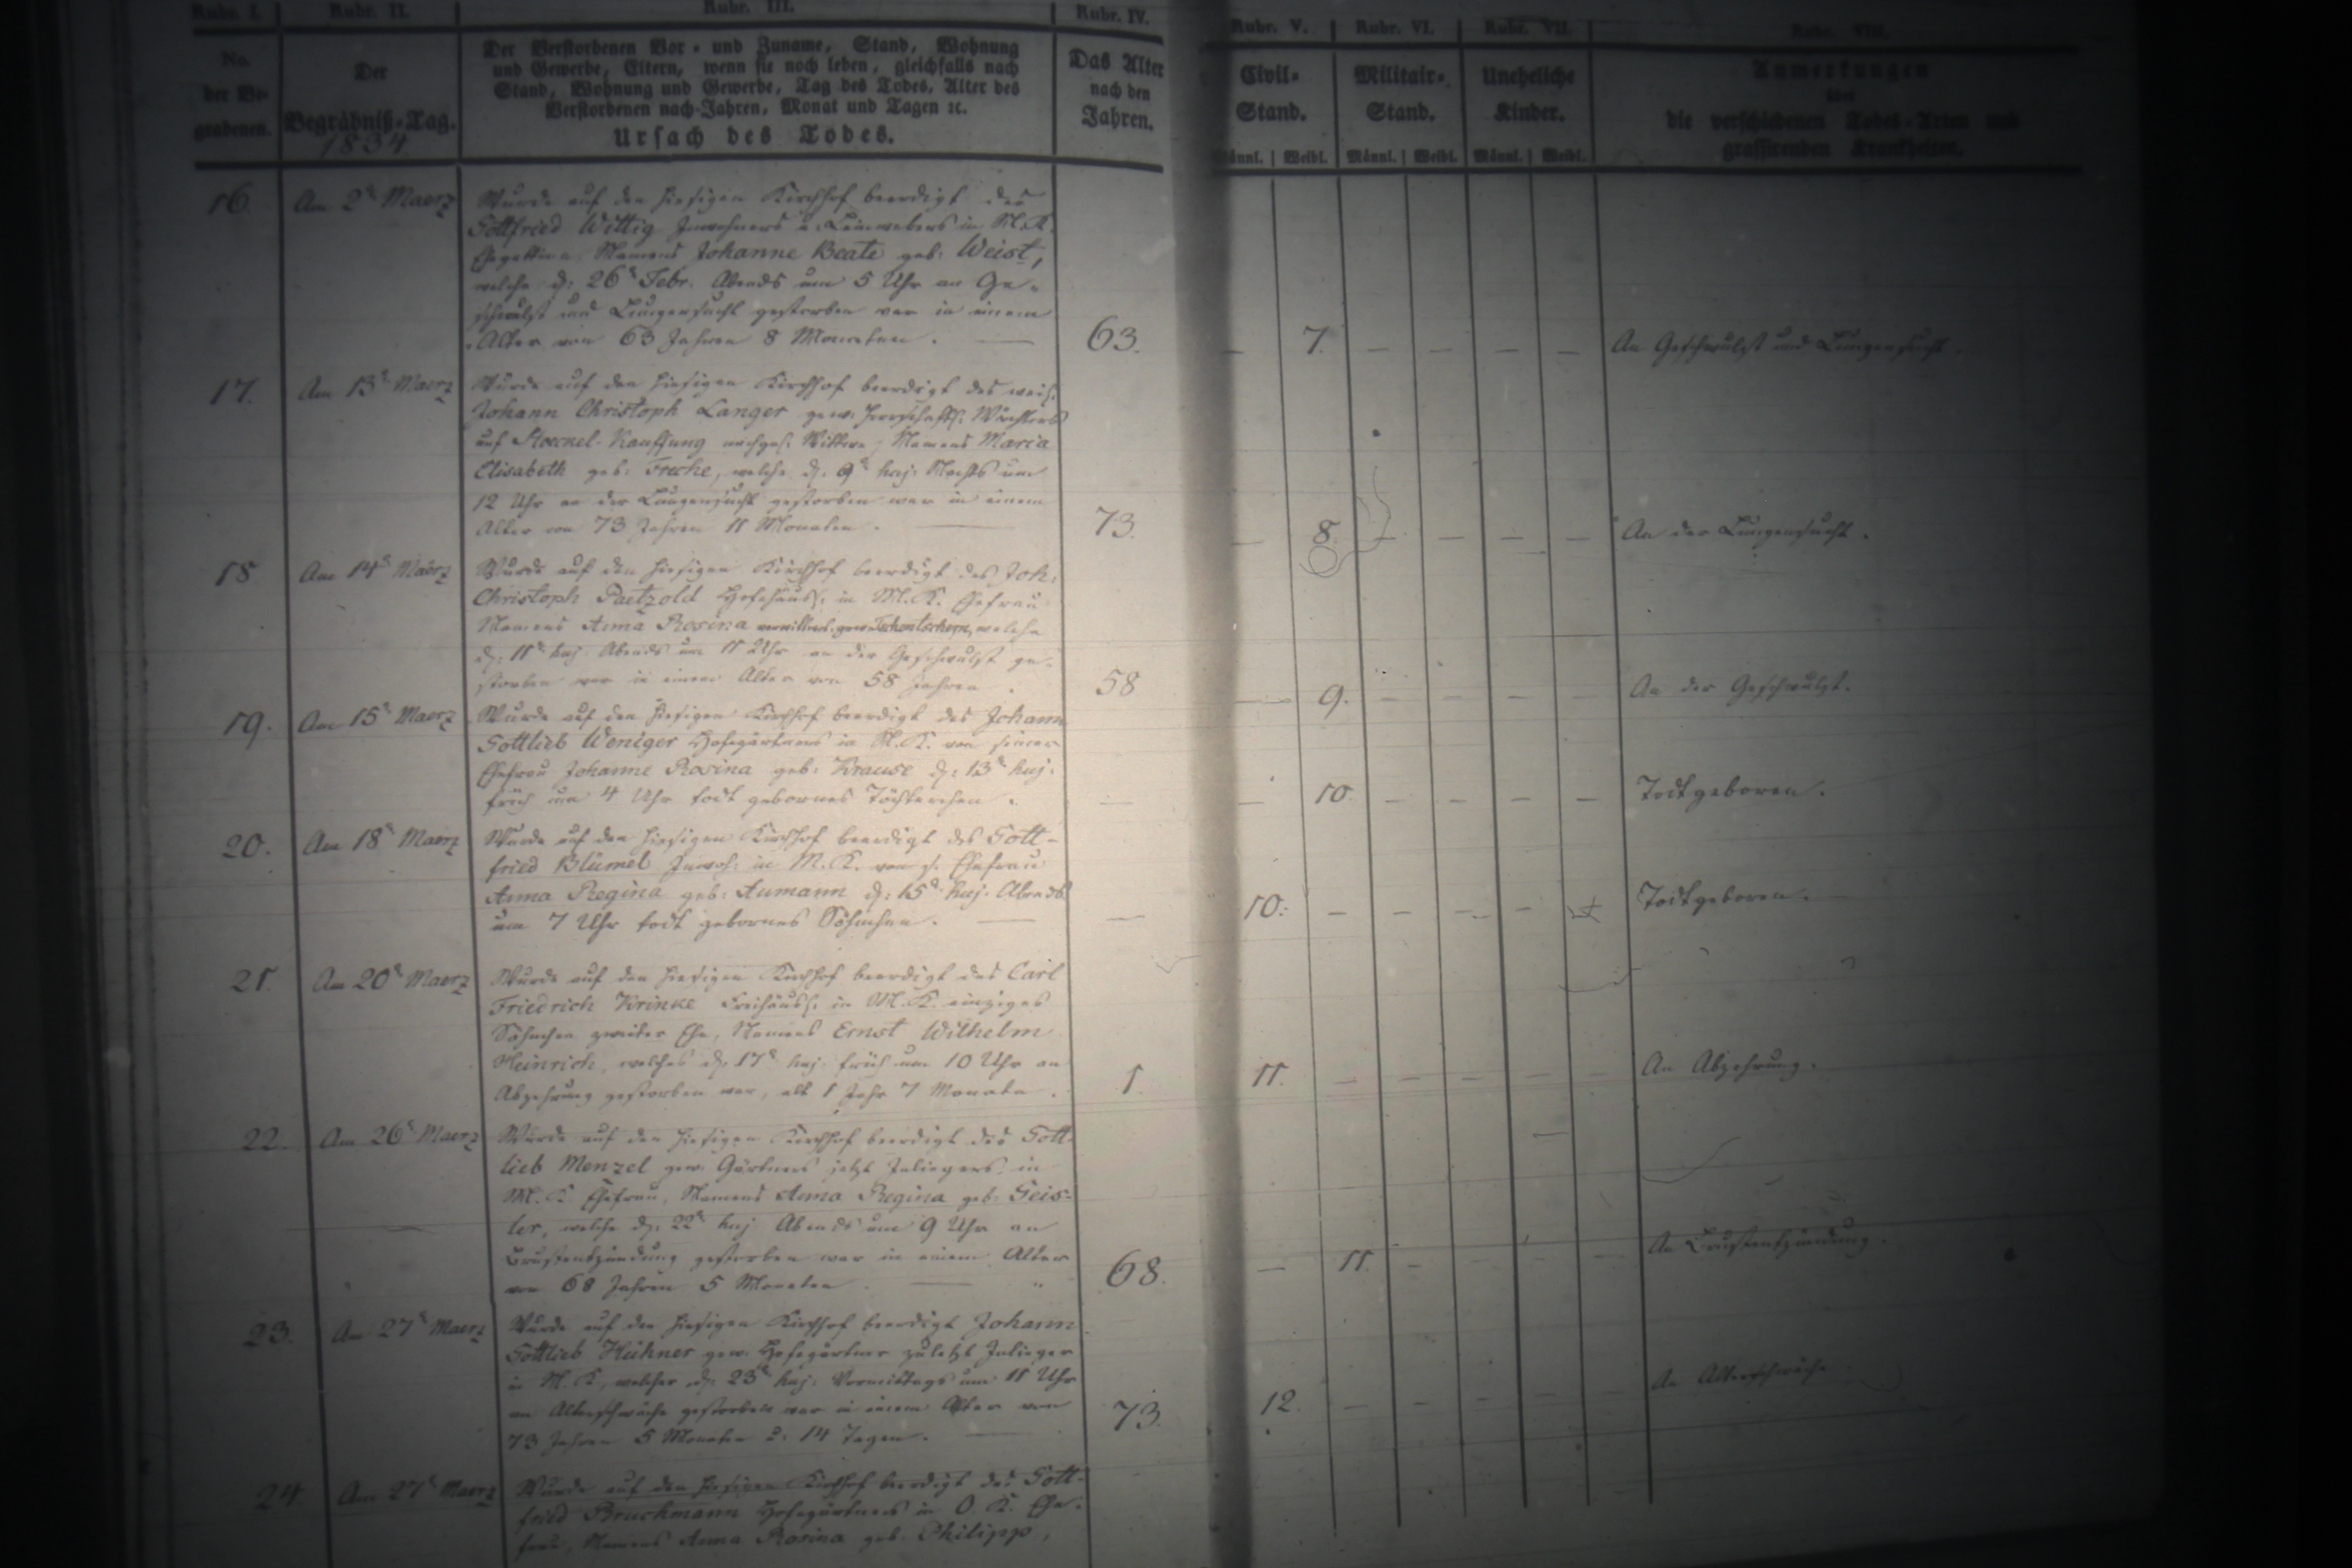 Rubr. I. Rubr. II. Rubr. III. Rubr. IV. Rubr. V. Rubr. VI. Rubr. VII. Rubr. VIII.
No. der Be-grabenen.
Der Begräbniß-Tag.
1834.
Der Verstorbenen Vor- und Zuname, Stand, Wohnung
und Gewerbe, Eltern, wenn sie noch leben, gleichfalls nach
Stand, Wohnung und Gewerbe, Tag des Todes, Alter des
Verstorbenen nach Jahren, Monat und Tagen ꝛc.
Ursach des Todes.
Das Alter
nach den
Jahren.
Civil-Stand.
Militair-Stand.
Uneheliche Kinder.
Anmerkungen
über
die verschiedenen Todes-Arten und
grassirenden Krankheiten.
Männl. Weibl. Männl. Weibl. Männl. Weibl.
16. Am 2t Maerz Wurde auf den hiesigen Kirchhof beerdigt des
Gottfried Wittig Inwohners u. Leinwebers in M. K.
Ehegattin Namens Johanne Beate geb: Weist,
welche d: 26t Febr. Abends um 5 Uhr an Ge-
schwulst und Lungensucht gestorben war in einem
Alter von 63 Jahren 8 Monaten. 63. – 7. – – – – An Geschwulst und Lungensucht.
17. Am 13t Maerz Wurde auf den hiesigen Kirchhof beerdigt des weil:
Johann Christoph Langer gew: herrschaftl: Wächters
auf Stoeckel-Kauffung nachgel: Wittwe, Namens Maria
Elisabeth geb: Freche, welche d. 9t huj: Nachts um
12 Uhr an der Lungensucht gestorben war in einem
Alter von 73 Jahren 11 Monaten. 73. – 8. – – – – An der Lungensucht.
18 Am 14t Maerz Wurde auf den hiesigen Kirchhof beerdigt des Joh:
Christoph Paetzold Hofehäusl: in M. K. Ehefrau
Namens Anna Rosina gew. Tschentschern, welche
d: 11t huj: Abends um 11 Uhr an der Geschwulst ge-
storben war in einem Alter von 58 Jahren. 58 – 9. – – – – An der Geschwulst.
19. Am 15t Maerz Wurde auf den hiesigen Kirchhof beerdigt des Johann
Gottlieb Weniger Hofegärtners in M. K. von seiner
Ehefrau Johanne Rosina geb: Krause d: 13t huj:
früh um 4 Uhr todt gebornes Töchterchen. – – 10. – – – – Todtgeboren.
20. Am 18t Maerz Wurde auf den hiesigen Kirchhof beerdigt des Gott-
fried Blümel Inwoh: in M. K. von s. Ehefrau
Anna Regina geb: Aumann d: 15t huj. Abends
um 7 Uhr todt gebornes Söhnchen. – 10. – – – – Todtgeboren.
21. Am 20t Maerz Wurde auf den hiesigen Kirchhof beerdigt des Carl
Friedrich Krinke Freihäusl: in M. K. einziges
Söhnchen zweiter Ehe, Namens Ernst Wilhelm
Heinrich, welches d. 17t huj. früh um 10 Uhr an
Abzehrung gestorben war, alt 1 Jahr 7 Monate. 1. 11. – – – – – An Abzehrung.
22. Am 26t Maerz Wurde auf den hiesigen Kirchhof beerdigt des Gott-
lieb Menzel gew. Gärtners jetzt Inliegers in
M. K. Ehefrau, Namens Anna Regina geb: Geis-
ler, welche d: 22t huj: Abends um 9 Uhr an
Brustentzündung gestorben war in einem Alter
von 68 Jahren 5 Monaten. 68. – 11. – – – – An Brustentzündung.
23. Am 27t Maerz Wurde auf den hiesigen Kirchhof beerdigt Johann
Gottlieb Hühner gew. Hofegärtner zuletzt Inlieger
in M. K., welcher d: 23t huj: Vormittags um 11 Uhr
an Altersschwäche gestorben war in einem Alter von
73 Jahren 5 Monaten u: 14 Tagen. 73. 12. – – – – – An Altersschwäche
24. Am 27t Maerz Wurde auf den hiesigen Kirchhof beerdigt des Gott-
fried Bruchmann Hofegärtners in O. K. Ehe-
frau, Namens Anna Rosina geb. Philipp,